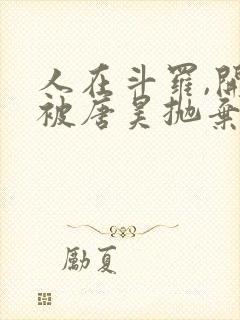 人在斗羅,開
被唐昊抛棄
勵夏